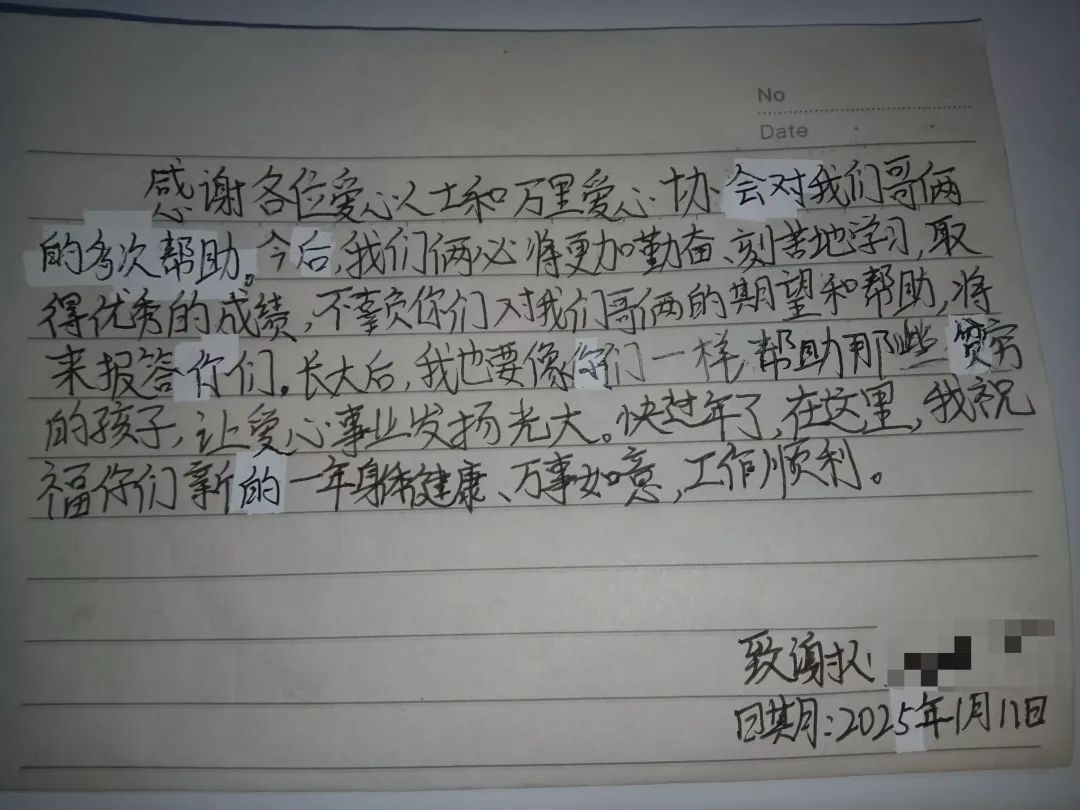 No
Date
感谢各位爱心人士和万里爱心协会对我们哥俩
的多次帮助。今后,我们俩必将更加勤奋、刻苦地学习,取
得优秀的成绩,不辜负你们对我们哥俩的期望和帮助,将
来报答你们。长大后,我也要像你们一样,帮助那些贫穷
的孩子,让爱心事业发扬光大。快过年了,在这里,我祝
福你们新的一年身体健康、万事如意,工作顺利。
致谢人:
日期:2025年1月11日